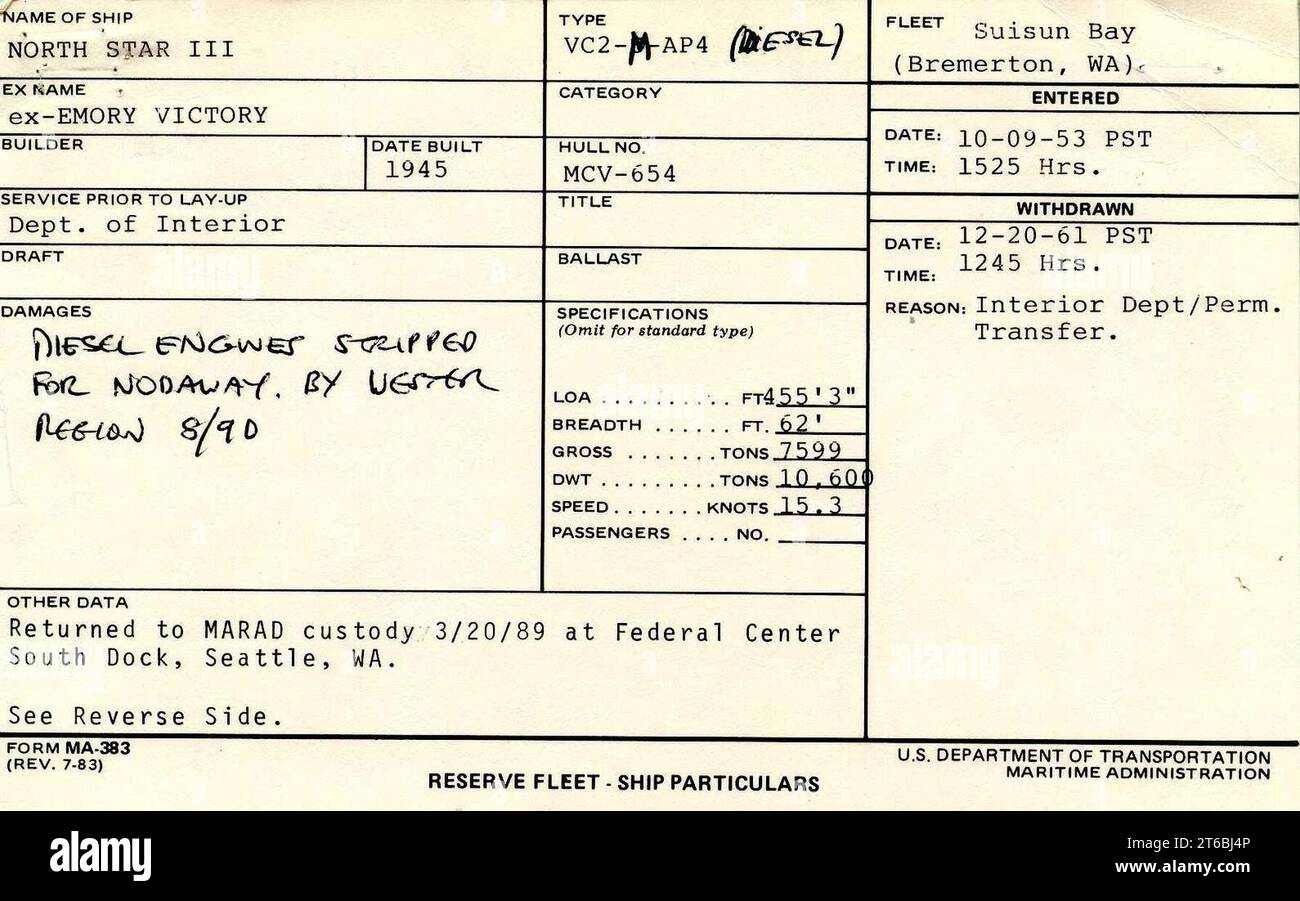 NAME OF SHIP
NORTH STAR III
TYPE
VC2-M-AP4 (DIESEL)
FLEET Suisun Bay
(Bremerton, WA).
EX NAME
ex-EMORY VICTORY
CATEGORY
ENTERED
DATE: 10-09-53 PST
TIME: 1525 Hrs.
BUILDER
DATE BUILT
1945
HULL NO.
MCV-654
SERVICE PRIOR TO LAY-UP
Dept. of Interior
TITLE
WITHDRAWN
DATE: 12-20-61 PST
TIME: 1245 Hrs.
REASON: Interior Dept/Perm.
Transfer.
DRAFT
BALLAST
DAMAGES
DIESEL ENGINES STRIPPED
FOR NODAWAY. BY WESTER
REGION 8/90
SPECIFICATIONS
(Omit for standard type)
LOA .......... FT. 455'3"
BREADTH ...... FT. 62'
GROSS ....... TONS 7599
DWT ......... TONS 10,600
SPEED ....... KNOTS 15.3
PASSENGERS .... NO.
OTHER DATA
Returned to MARAD custody 3/20/89 at Federal Center
South Dock, Seattle, WA.
See Reverse Side.
FORM MA-383
(REV. 7-83)
RESERVE FLEET - SHIP PARTICULARS
U.S. DEPARTMENT OF TRANSPORTATION
MARITIME ADMINISTRATION
alamy
Image ID: 2T6BJ4P
www.alamy.com